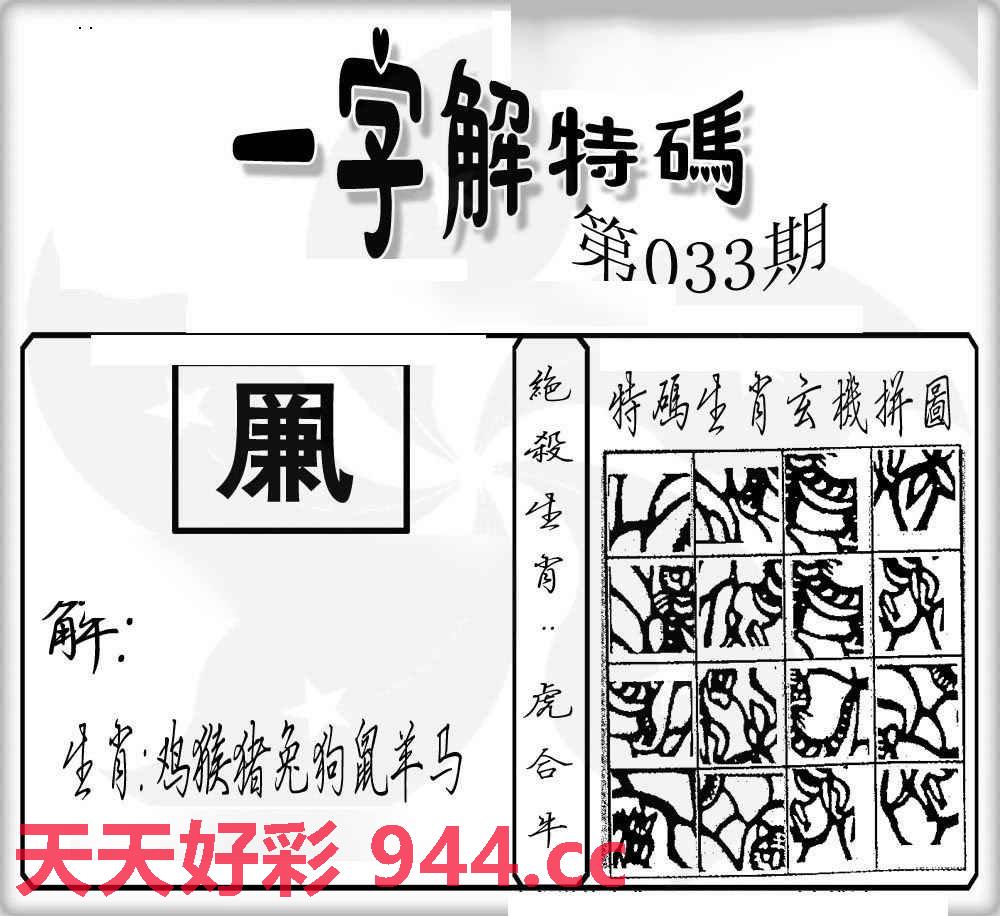 一字解特碼
第033期
解:
生肖:鸡猴猪兔狗鼠羊马
絶殺生肖:虎合牛
特碼生肖玄機拼圖
天天好彩 944.cc